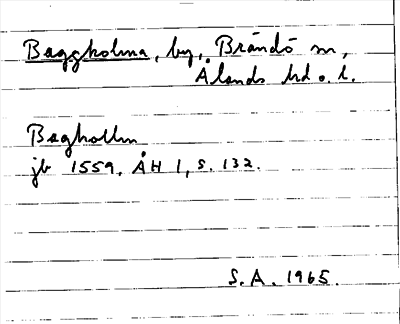 Baggholma, by, Brändö sn,
Ålands hd o. l.
Bagholm
jb 1559. ÅH 1, s. 132.
S.A. 1965.